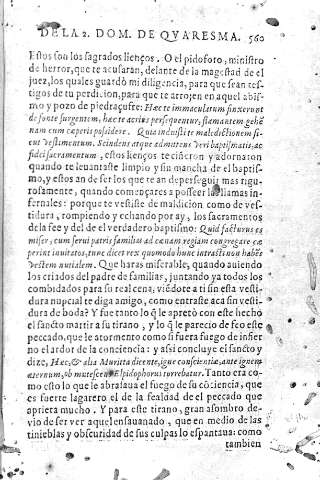 DE LA 2. DOM. DE QVARESMA. 560
Estos son los sagrados lienços. O elpidoforo, ministro
de herror, que te acusaràn, delante de la magestad de el
juez, los quales guardò mi diligencia, para que sean tes-
tigos de tu perdicion, para que te arrojen en aquel abis-
mo y pozo de piedraçufre: Hæc te immaculatum sinxerunt
de fonte surgentem, hæc te acrius persequentur, flamantem gehē
nam cum cæperis posidere. Quia induisti te maledictionem si-
cut vestimentum. Scindens atque admatens veri baptismatis, ac
fidei sacramentum, estos lienços te ciñeron y adornaron
quando te leuantaste limpio y sin mancha de el baptis-
mo, y estos an de ser los que te an de perseguir mas rigu-
rosamente, quando començares a posseer las llamas in-
fernales: porque te vestiste de maldicion como de ves-
tidura, rompiendo y echando por ay, los sacramentos
de la fee y del de el verdadero baptismo: Quid facturus es
miser, cum serui patris familias ad cænam regiam congregare cæ
perint inuitatos, tunc dicet rex quomodo hunc intrasti non habēs
vestem nutialem. Que haras miserable, quando auiendo
los criados del padre de familias, juntando ya todos los
combidados para su real cena, viēdote a ti sin esta vesti
dura nupcial te diga amigo, como entraste aca sin vesti-
dura de boda? Y fue tanto lo q̃ le apretò con este hecho
el sancto martir a su tirano, y lo q̃ le parecio de feo este
peccado, que le atormento como si fuera fuego de infier
no el ardor de la conciencia: y assi concluye el sancto y
dize, Hæc, & alia Murita diente, igne conscientiæ, ante ignem
æternum, ob mutescens Elpidophorus torrebatur. Tanto era co-
mo esto lo que le abrasaua el fuego de su cōciencia, que
es fuerte lagarero el de la fealdad de el peccado que
aprieta mucho. Y para este tirano, gran asombro de-
vio de ser ver aquel ensauanado, que en medio de las
tinieblas y obscuridad de sus culpas lo espantaua: como
tambien